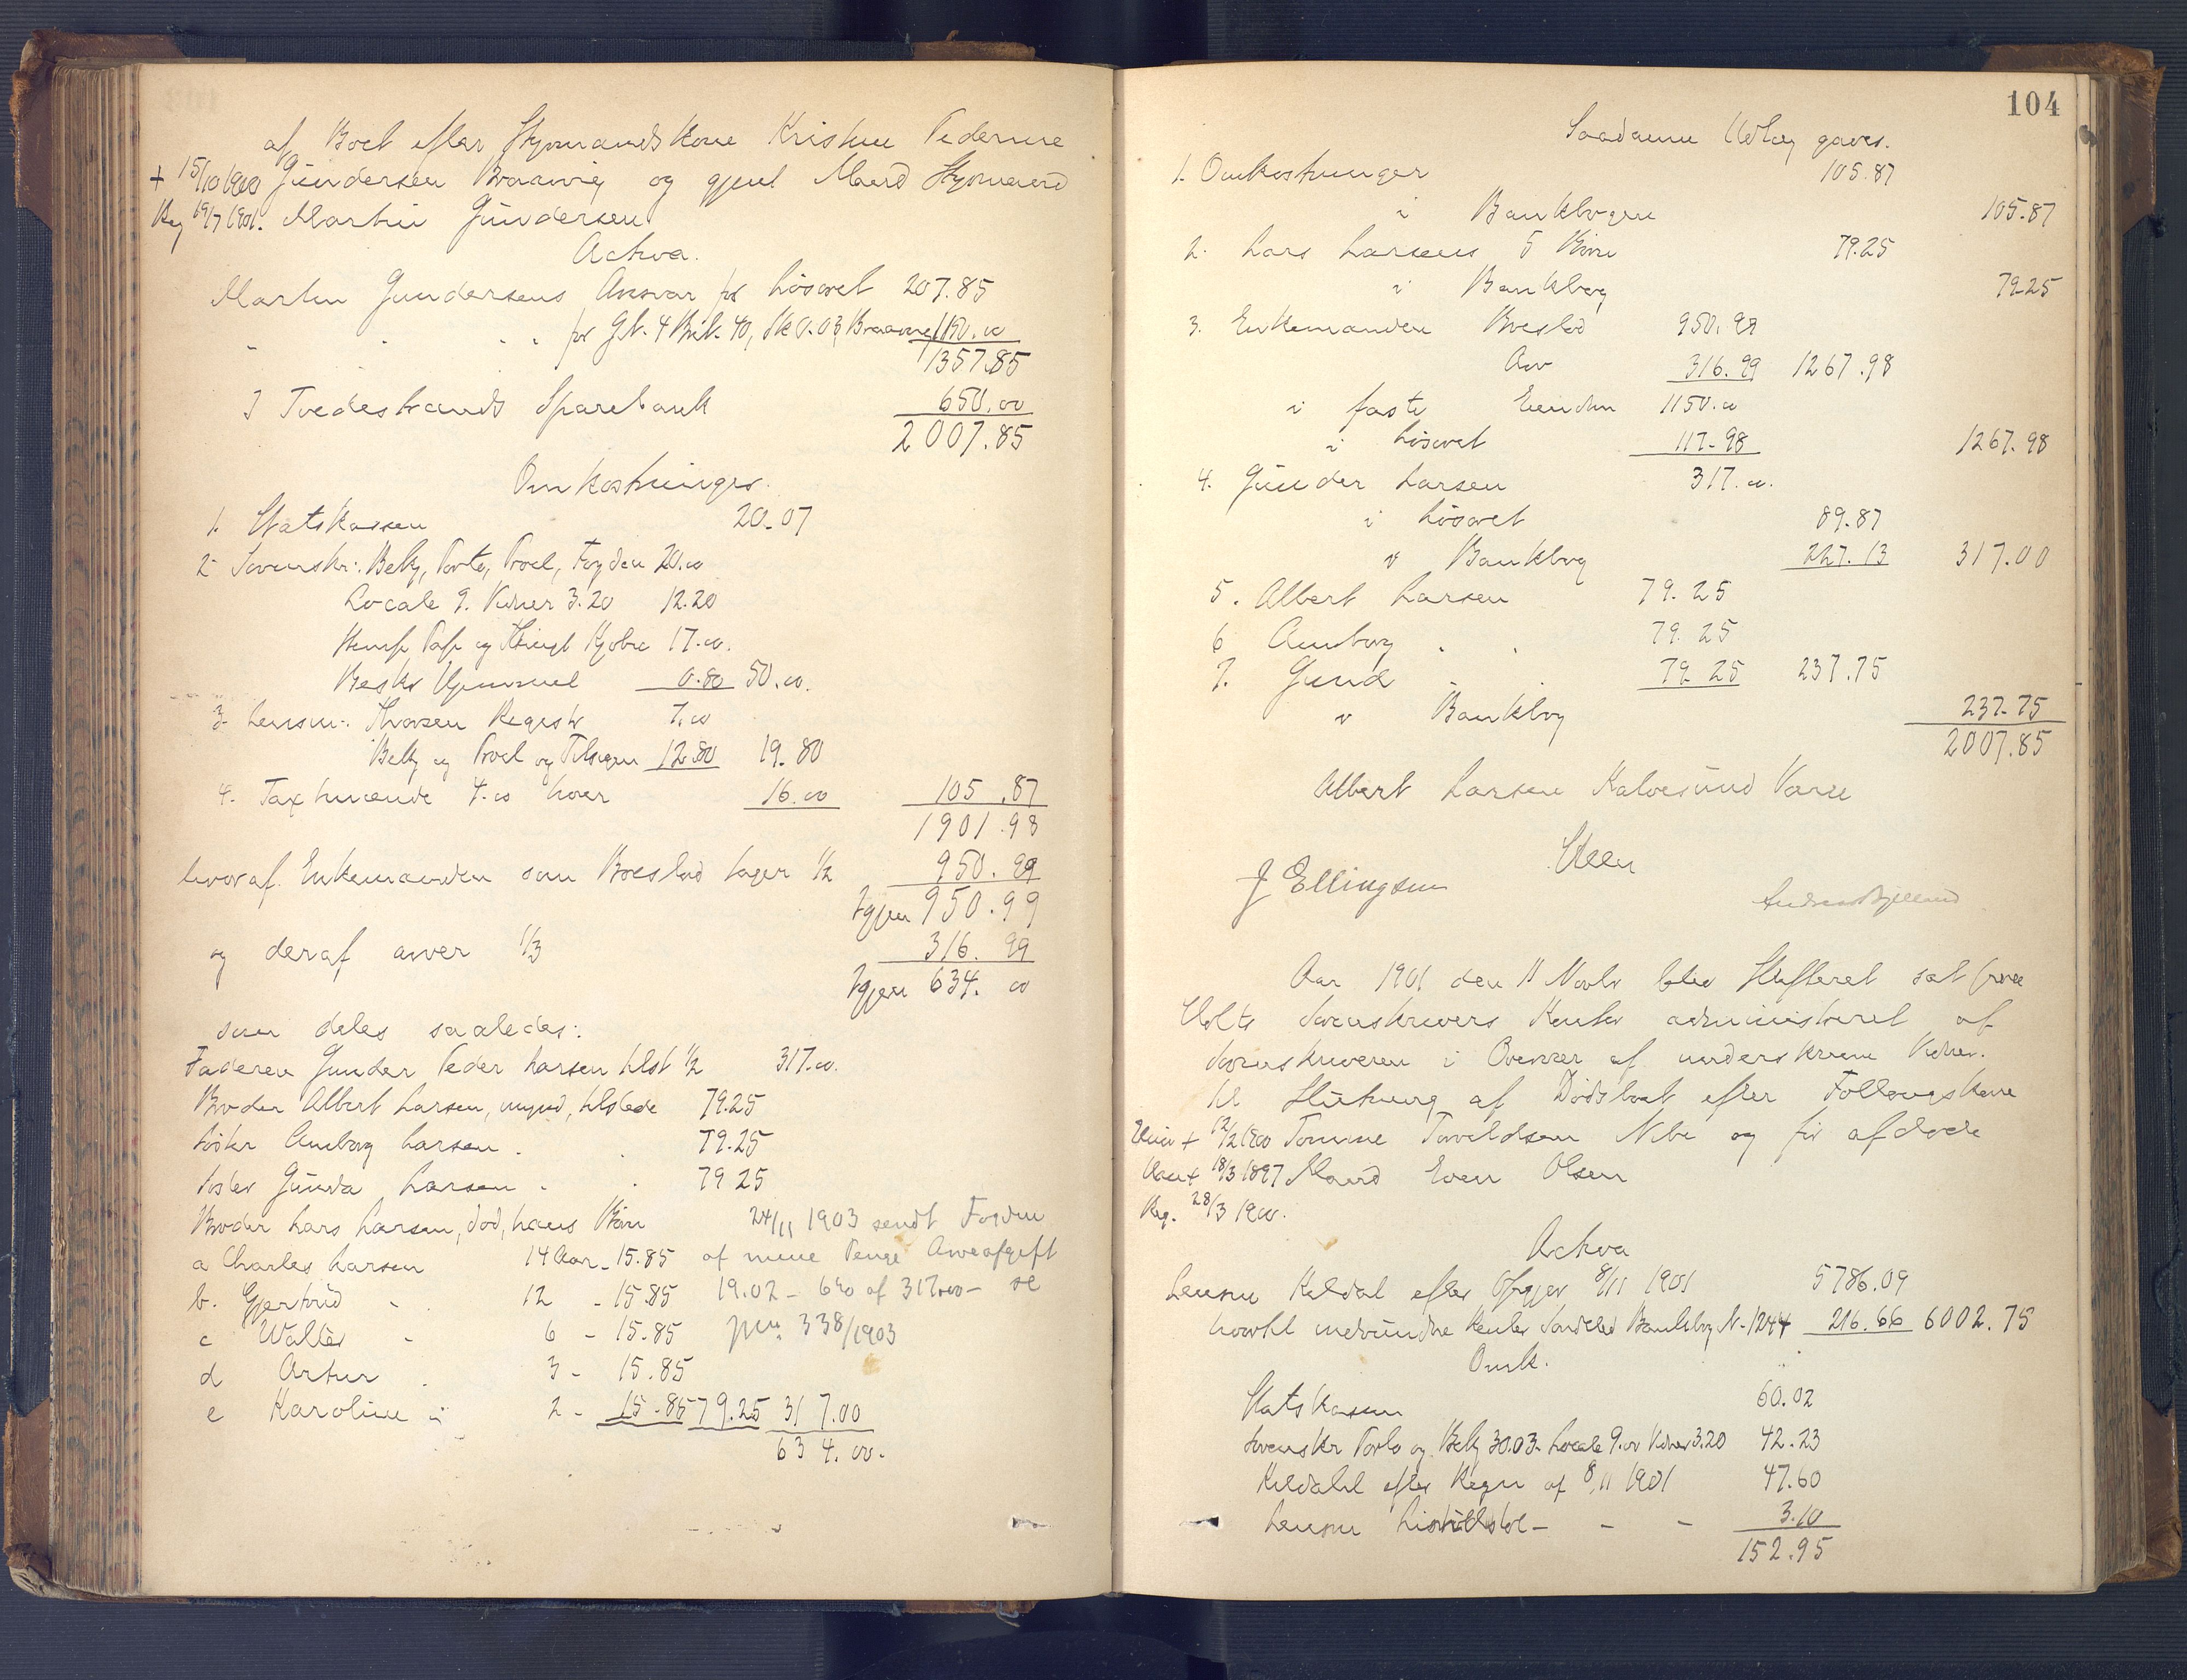 af Boet efter Skjomandskone Kristine Pedernne
+ 15/10 1900 Gundersen Braavig og gjenl Mand Skjomand
Reg 19/7 1901. Martin Gundersen
Activa.
Martin Gundersens Ansvar for Løsøret 207.85
" " " for Gt. 4 Br.k. 40, Sk 0.03 Braavig 1150.00
1357.85
I Tvedestrands Sparebank 650.00
2007.85
Omkostninger.
1. Statskassen 20-07
2- Sorenskr: Bekj, Porto, Procl, Fogden 20.00
Locale 9. Vidner 3.20 12.20
Stemp Pap og Thingl Hjobre 17.00.
Beskr Skjemael 0.80 50.00.
3- Lensm: Thorsen Registr 7.00
Bekj og Procl og Tilsigen 12.80 19.80
4. Taxtmænde 4.00 hver 16.00 105.87
1901.98
hvoraf Enkemanden som Boeslod tager 1/2 950.99
Igjen 950.99
og deraf arver 1/3 316.99
Igjen 634.00
som deles saaledes:
Faderen Gunder Peder Larsen tilst 1/2 317.00.
Broder Albert Larsen, mynd, tilstede 79.25
Søster Amborg Larsen " " 79.25
Søster Gunda Larsen " " 79 25
Broder Lars Larsen, død, hans Børn 24/11 1903 sendt Fogden
a Charles Larsen 14 Aar - 15.85 af mine Penge Arveafgift
b. Gjertrud " 12 - 15.85 19.02 - 6% af 317.00 - se
c Walter " 6 - 15.85 jnr: 338/1903
d Artur " 3 - 15.85
e Karoline " 2 - 15.85 79.25 317.00
634.00.
104
Saadanne Udlæg gaves.
1. Omkostninger 105.87
i Bankbogen 105.87
2. Lars Larsens 5 Børn 79.25
i Bankbog 79-25
3. Enkemanden Boeslod 950.99
Arv 316.99 1267.98
i faste Eiendom 1150.00
i Løsøret 117-98 1267.98
4. Gunder Larsen 317.00.
i Løsøret 89.87
i Bankbog 227.13 317.00
5. Albert Larsen 79.25
6 Amborg " " 79.25
7. Gund " " 79 25 237.75
i Bankbog 237-75
2007.85
Albert Larsen Kalvesund
Steen
J Ellingsen
Andreas Bjelland
Aar 1901 den 11 Novbr blev Skifteret sat paa
Holts Sorenskrivers Kontor administreret af
Sorenskriveren i Overvær af underskrevne Vidner.
til Slutning af Dødsboet efter Føllougskone
+ 12/2 1900 Tomine Torvildsen Nibe og før afdøde
+ 18/3 1897 Mand Even Olsen
Reg. 28/3 1900.
Activa
Lensm Keldal efter Opgjør 8/11 1901 5786.09
hvortil medvundne Renter Søndeled Bankbog N- 1244 216.66 6002.75
Omk.
Statskassen 60.02
Sorenskr Porto og Bekj 30.03- Locale 9.00 Vidner 3.20 42.23
Keldahl efter Regn af 8/11 1901 47.60
Lensm - - - 3.10
152.95